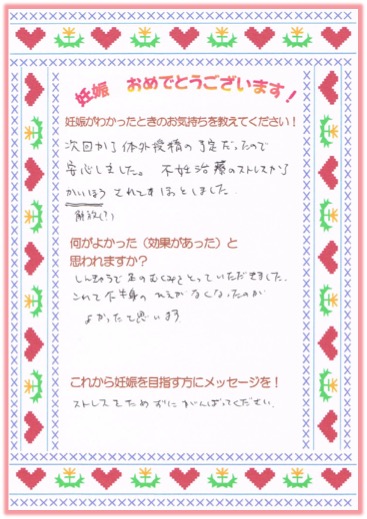 妊娠 おめでとうございます!
妊娠がわかったときのお気持ちを教えてください!
次回から体外授精の予定だったので
安心しました。不妊治療のストレスから
かいほうされてほっとしました.
解放(?)
何がよかった(効果があった)と
思われますか?
しんきゅうで足のむくみをとっていただきました.
これで下半身の冷えがなくなったのが
よかったと思います
これから妊娠を目指す方にメッセージを!
ストレスをためずにがんばってください.